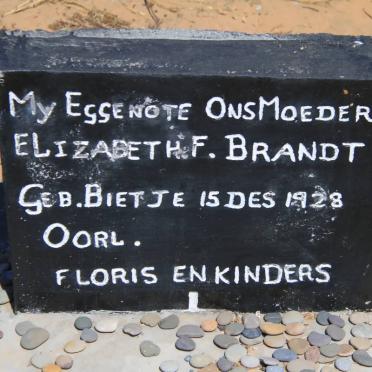 My EggENOTE ONSMOEDER
ELIZABETH.F. BRANDT
GEB.BIETJE 15 DES 1928
OORL.
FLORIS EN KINDERS